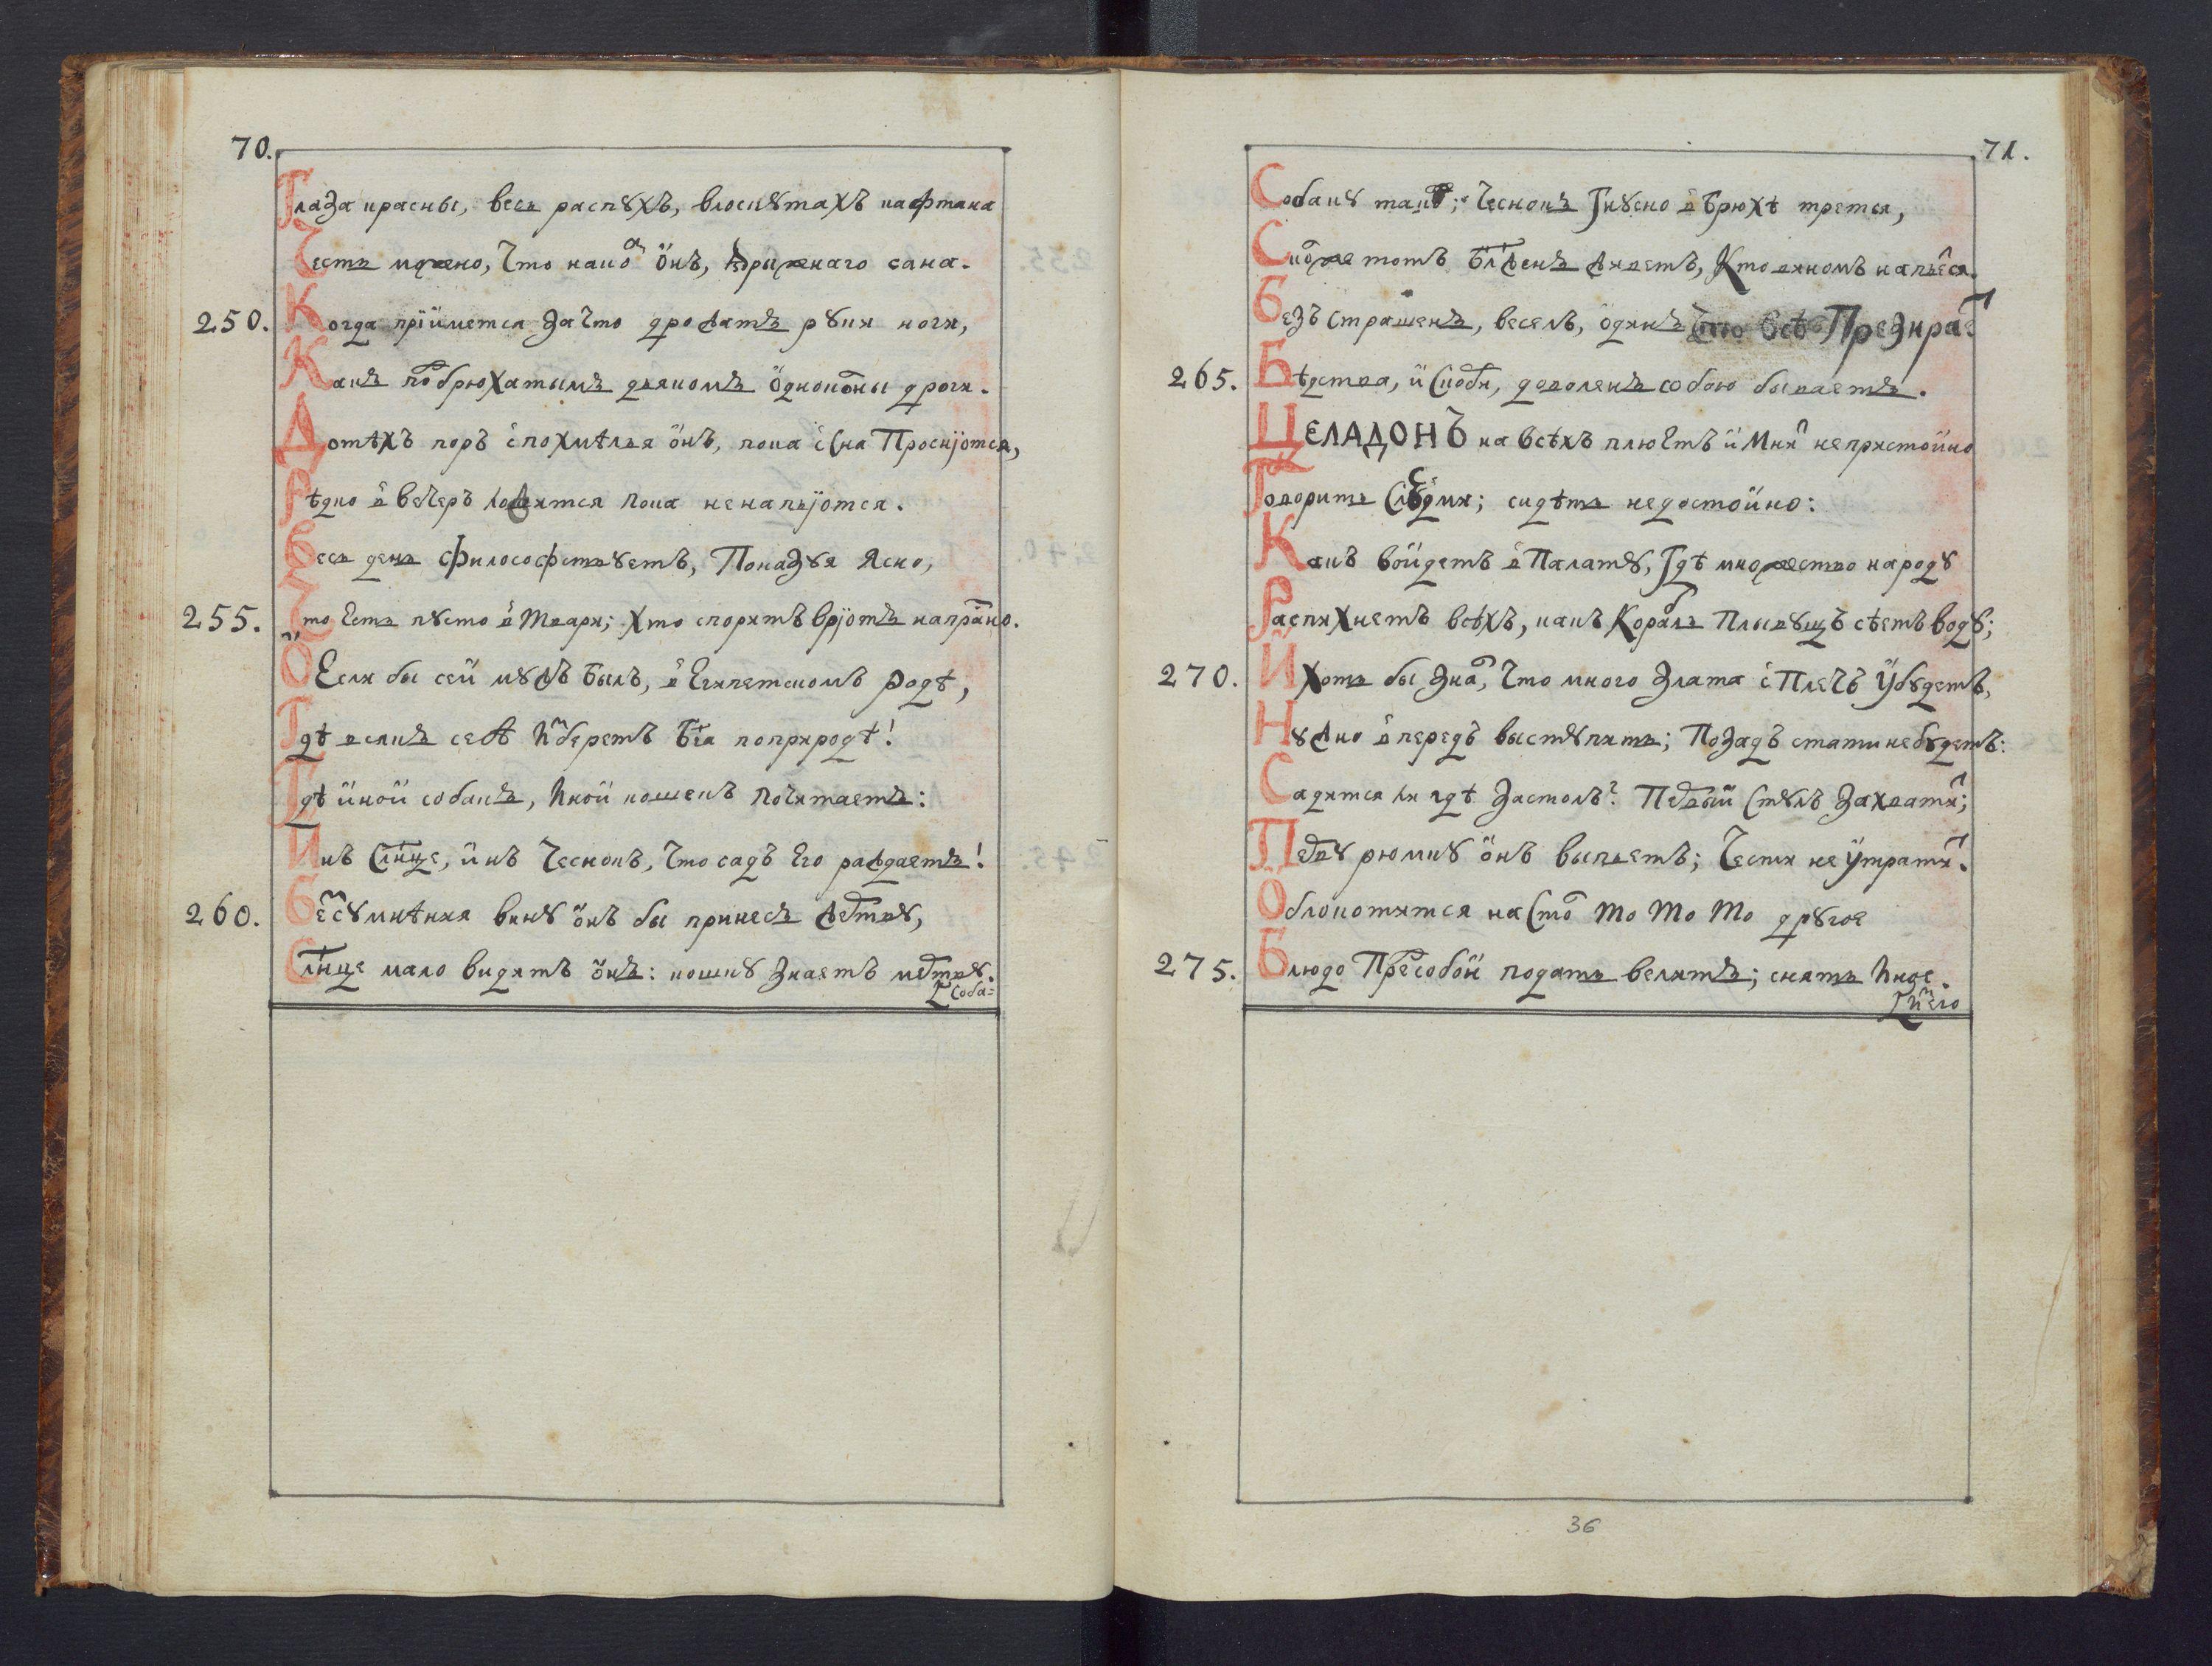 70.
Глаза красны, весь распꙋхъ, влоскꙋтахъ кафтана
Честь можно, что како онъ, приꙗжнаго сана.
250. Когда прїимется за что дрожатъ рꙋки ноги,
Какъ по брюхатымъ дьякомъ одноко́ны дроги.
Дотѣхъ поръ с похмѣлья онъ, пока с Сна Проснjотся,
Рѣдко в вечеръ ложится пока ненапьjотся.
Весь день философствꙋетъ, Показꙋя Ясно,
255. Что Есть пꙋсто в Твари; Хто спорятъ врjотъ напрано.
О Если бы сей мꙋжъ Былъ, в Египетскомъ родѣ,
Гдѣ всякъ себѣ и҆збереть Бга по природѣ!
Гдѣ иной собакъ, Иной кошекъ Почитаетъ:
Инъ Слнце, инъ Чеснокъ, Что садъ Его раждаетъ!
260. Бесꙋмнѣния винꙋ онъ бы принесъ жетвꙋ,
Слнце мало видитъ онъ: кошкꙋ Знаетъ метвꙋ.
Соба=
71.
Собакꙋ тако; Чеснокъ Гнꙋсно в Брюхѣ трется,
Скоже тотъ Блженъ живетъ, Кто виномъ напьеся.
Безъ Страшенъ, веселъ, одинъ Что всѣ Презирае
265. Бѣдства, и Скоби, доволенъ собою бываетъ.
ЦЕЛАДОНЪ на всѣхъ плюЕтъ и Мни непристойно
Говорить Слюдми; сидѣть недостойно:
Какъ войдетъ в Палатꙋ, Гдѣ множество народꙋ
Распихнетъ всѣхъ, какъ Корабль Плывꙋщъ сѣетъ водꙋ;
270. И Хоть бы Зна, Что много Злата с Плечъ Убꙋдетъ,
Нꙋжно впередъ выстꙋпить; Позадъ стати небꙋдетъ:
Садится ли гдѣ Застолъ? Певый Стꙋлъ Захвати;
Певꙋ рюмкꙋ онъ выпьетъ; Чести не Утрати.
Облокотится на Сто То То То дрꙋгое
275. Блюдо Пресобой подать велитъ; снять Иное.
36